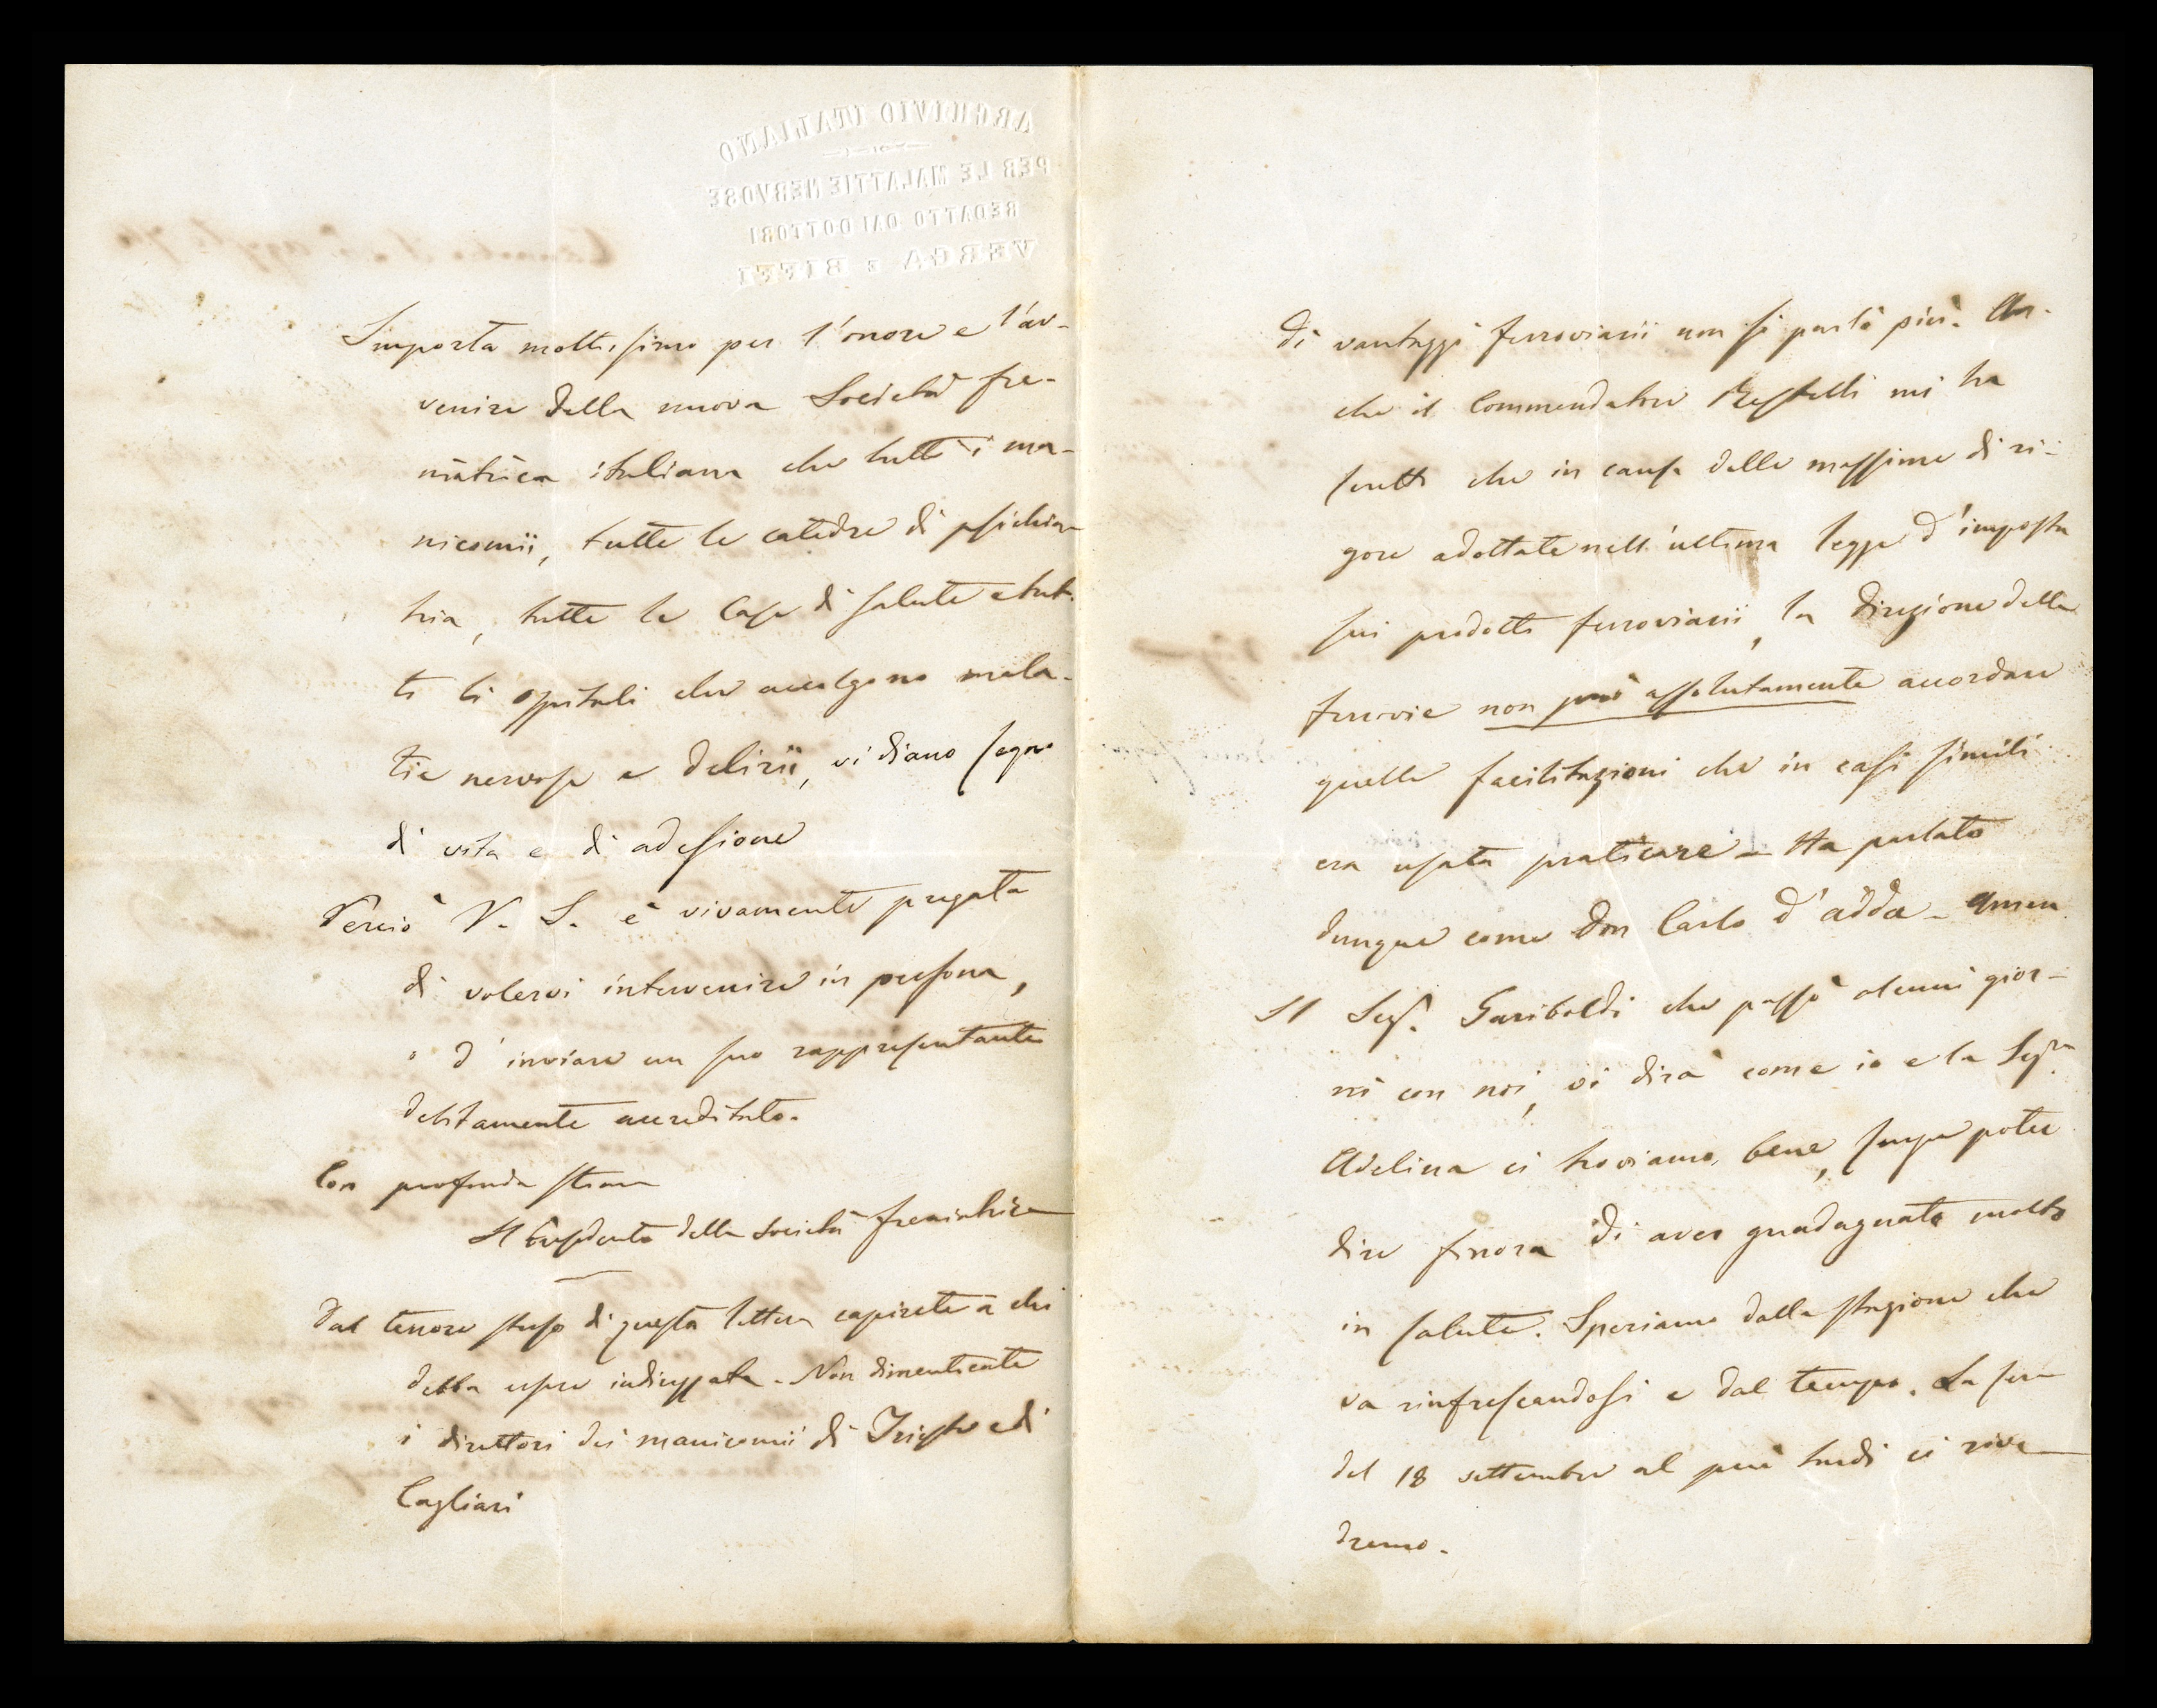 ARCHIVIO ITALIANO
PER LE MALATTIE NERVOSE
REDATTO DAI DOTTORI
VERGA E BIFFI
Importa moltissimo per l'onore e l'av-
venire della nuova Società fre-
niatrica italiana che tutti i ma-
nicomii, tutte le catedre di psichia-
tria, tutte le Case di salute e tut-
ti li ospitali che accolgono mala-
tie nervose e delirii, vi diano segno
di vita e di adesione
Perciò V. S. è vivamente pregata
di volervi intervenire in persona,
o d'inviare un suo rappresentante
debitamente accreditato.
Con profonda stima
Il Presidente della Società freniatrica
Dal tenore stesso di questa lettera capirete a chi
debba esser indirizzata. Non dimenticate
i direttori dei manicomii di Trieste e di
Cagliari
Di vantaggi ferroviarii non si parla più. An-
che il Commendatore Restelli mi ha
scritto che in causa delle massime di ri-
gore adottate nell'ultima legge d'imposta
sui prodotti ferroviarii, la Direzione delle
ferrovie non può assolutamente accordare
quelle facilitazioni che in casi simili
era usata praticare - Ha parlato
dunque come Don Carlo d'Adda - Amen
Il Sigr. Garibaldi che passò alcuni gior-
ni con noi, vi dirà come io e la Sigra
Adelina ci troviamo bene, senza poter
dire finora di aver guadagnato molto
in salute. Speriamo dalla stagione che
va rinfrescandosi e dal tempo. La sera
del 18 settembre al più tardi ci rive-
dremo.